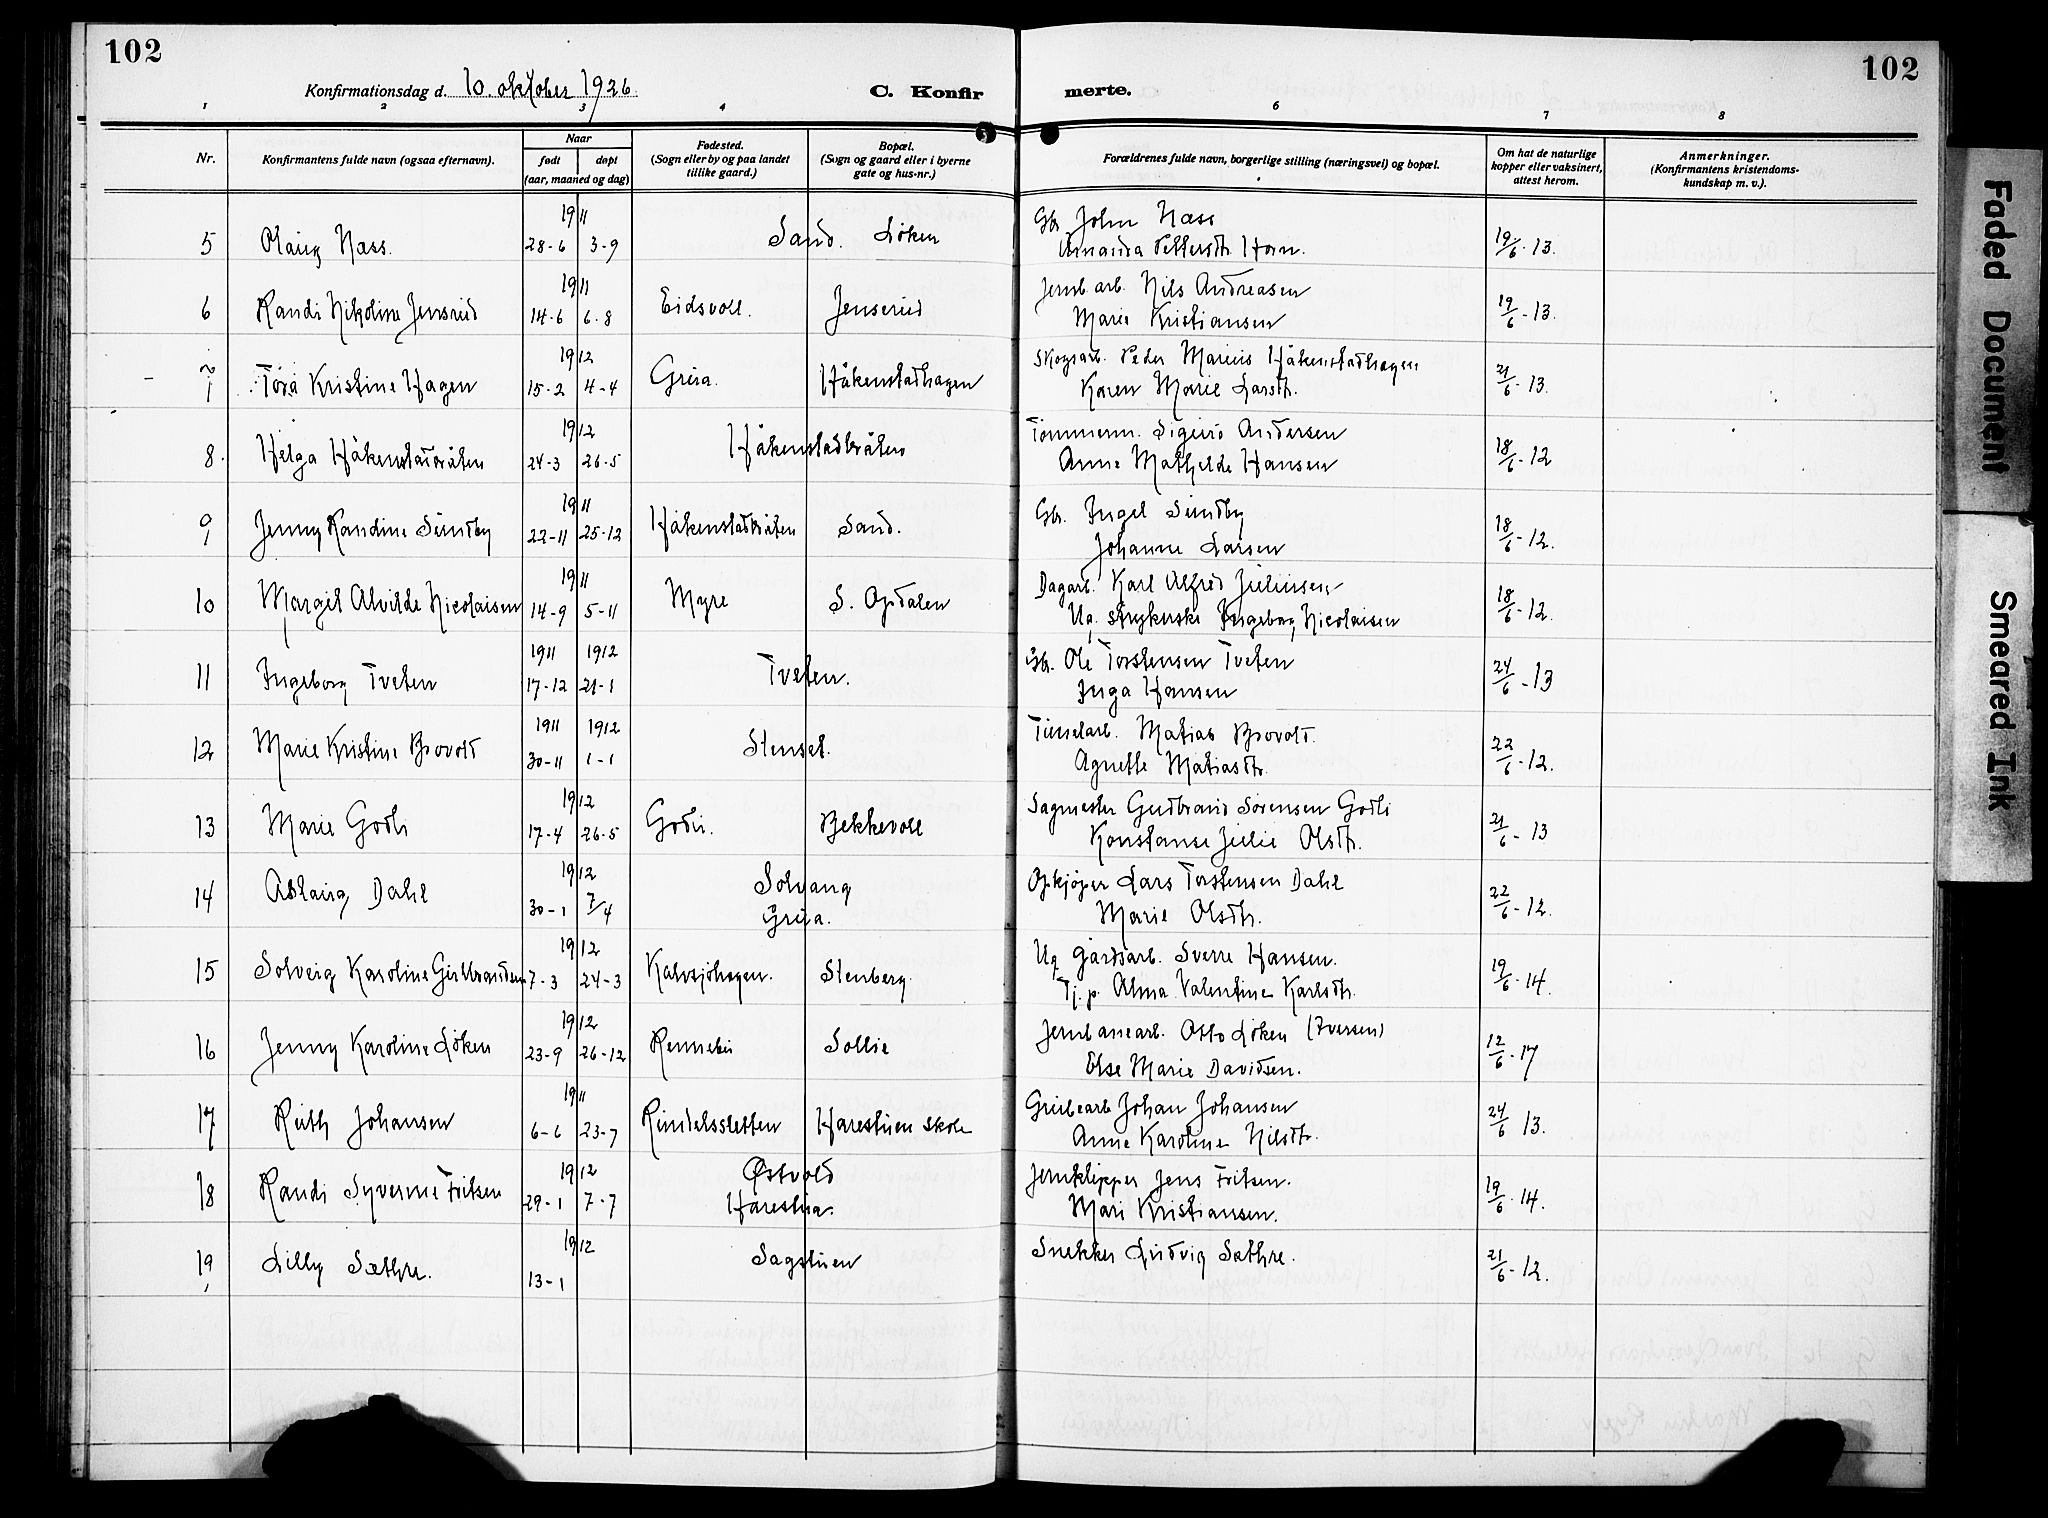 102
102
Konfirmationsdag d. 10. oktober 1926.
C. Konfirmerte.
1 2 3 4 6 7 8
Nr.
Konfirmantens fulde navn (ogsaa efternavn).
Naar
født
døpt
(aar, maaned og dag)
Fødested.
(Sogn eller by og paa landet
tillike gaard.)
Bopæl.
(Sogn og gaard eller i byerne
gate og hus-nr.)
Forældrenes fulde navn, borgerlige stilling (næringsvei) og bopæl.
Om hat de naturlige
kopper eller vaksinert,
attest herom.
Anmerkninger.
(Konfirmantens kristendoms-
kundskap m. v.).
1911 Gbr. John Næss
5 Olaug Næss. 28-6 3-9 Sand. Løken Amanda Pettersdtr. Horn. 19/6-13.
1911 Jernb.arb. Nils Andreasen
6 Randi Nikoline Jensrud 14-6 6-8 Eidsvoll. Jensrud Marie Kristiansen 19/6-13.
1912 Skogsarb. Peder Marius Håkenstadhagen
7 Tora Kristine Hagen 15-2 4-4 Grua. Håkenstadhagen Karen Marie Larsdtr. 21/6-13.
1912 Tømmerm. Sigurd Andersen
8. Helga Håkenstadbråten 24-3 26-5 Håkenstadbråten Anne Mathilde Hansen 18/6-12
1911 Gbr. Ingel Sundby
9 Jenny Randine Sundby 22-11 25-12 Håkenstadbråten Sand. Johanne Larsen 18/6-12.
1911 Dagarb. Karl Alfred Juliussen
10 Margit Alvilde Nicolaisen 14-9 5-11 Myre S. Opdalen Ug. strykerske Ingeborg Nicolaisen 18/6-12.
1911 1912 Gbr. Ole Torstensen Tveten
11 Ingeborg Tveten 17-12 21-1 Tveten. Inga Hansen 24/6-13
1911 1912 Tunnelarb. Matias Brovold.
12 Marie Kristine Brovold 30-11 1-1 Stenset. Agnette Matiasdtr. 22/6-12.
1912 Sagmester Gudbrand Sørensen Godli
13 Marie Godli 17-4 26-5 Godli. Bekkevoll Konstanse Julie Olsdtr. 21/6-13
1912 Opkjøper Lars Torstensen Dahl
14 Aslaug Dahl 30-1 7/4 Solvang Grua. Marie Olsdtr. 22/6-12.
1912 Ug gårdsarb. Sverre Hansen.
15 Solveig Karoline Gulbrandsen 7-3 24-3 Kalvsjøhagen. Stenberg Tj.p. Alma Valentine Karlsdtr. 19/6-14.
1912 Jernbanearb. Otto Løken (Iversen)
16 Jenny Karoline Løken 23-9 26-12 Sollie Else Marie Davidsen. 12/6-17
1911 Grubearb Johan Johansen
17 Ruth Johansen 6-6 23-7 Rundelssletten Harestuen skole Anne Karoline Nilsdtr. 24/6 13.
1912 Østvold Jernklipper Jens Fritsen.
18 Randi Syverine Fritsen 29-1 7-7 Harestua. Mari Kristiansen. 19/6-14.
1912 Snekker Ludvig Sæthre.
19 Lilly Sæthre. 13-1 Sagstuen 21/6-12.
Faded Document
Smeared Ink